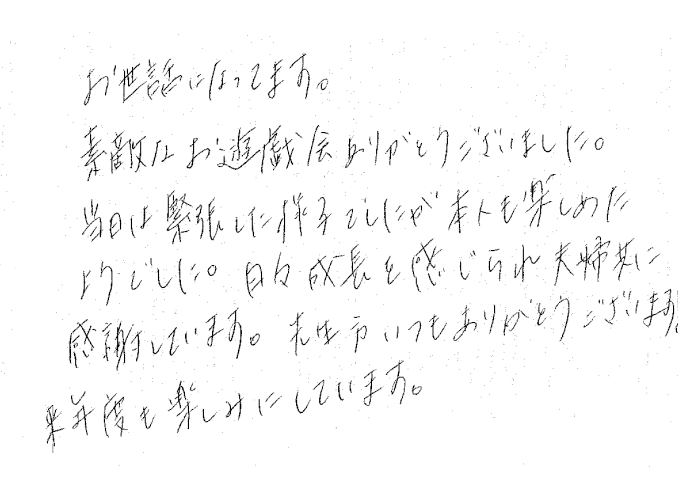 お世話になってます。
素敵なお遊戯会ありがとうございました。
当日は緊張した様子でしたが本人も楽しめた
ようでした。日々成長を感じられ夫婦共に
感謝しています。先生方いつもありがとうございます。
来年度も楽しみにしています。